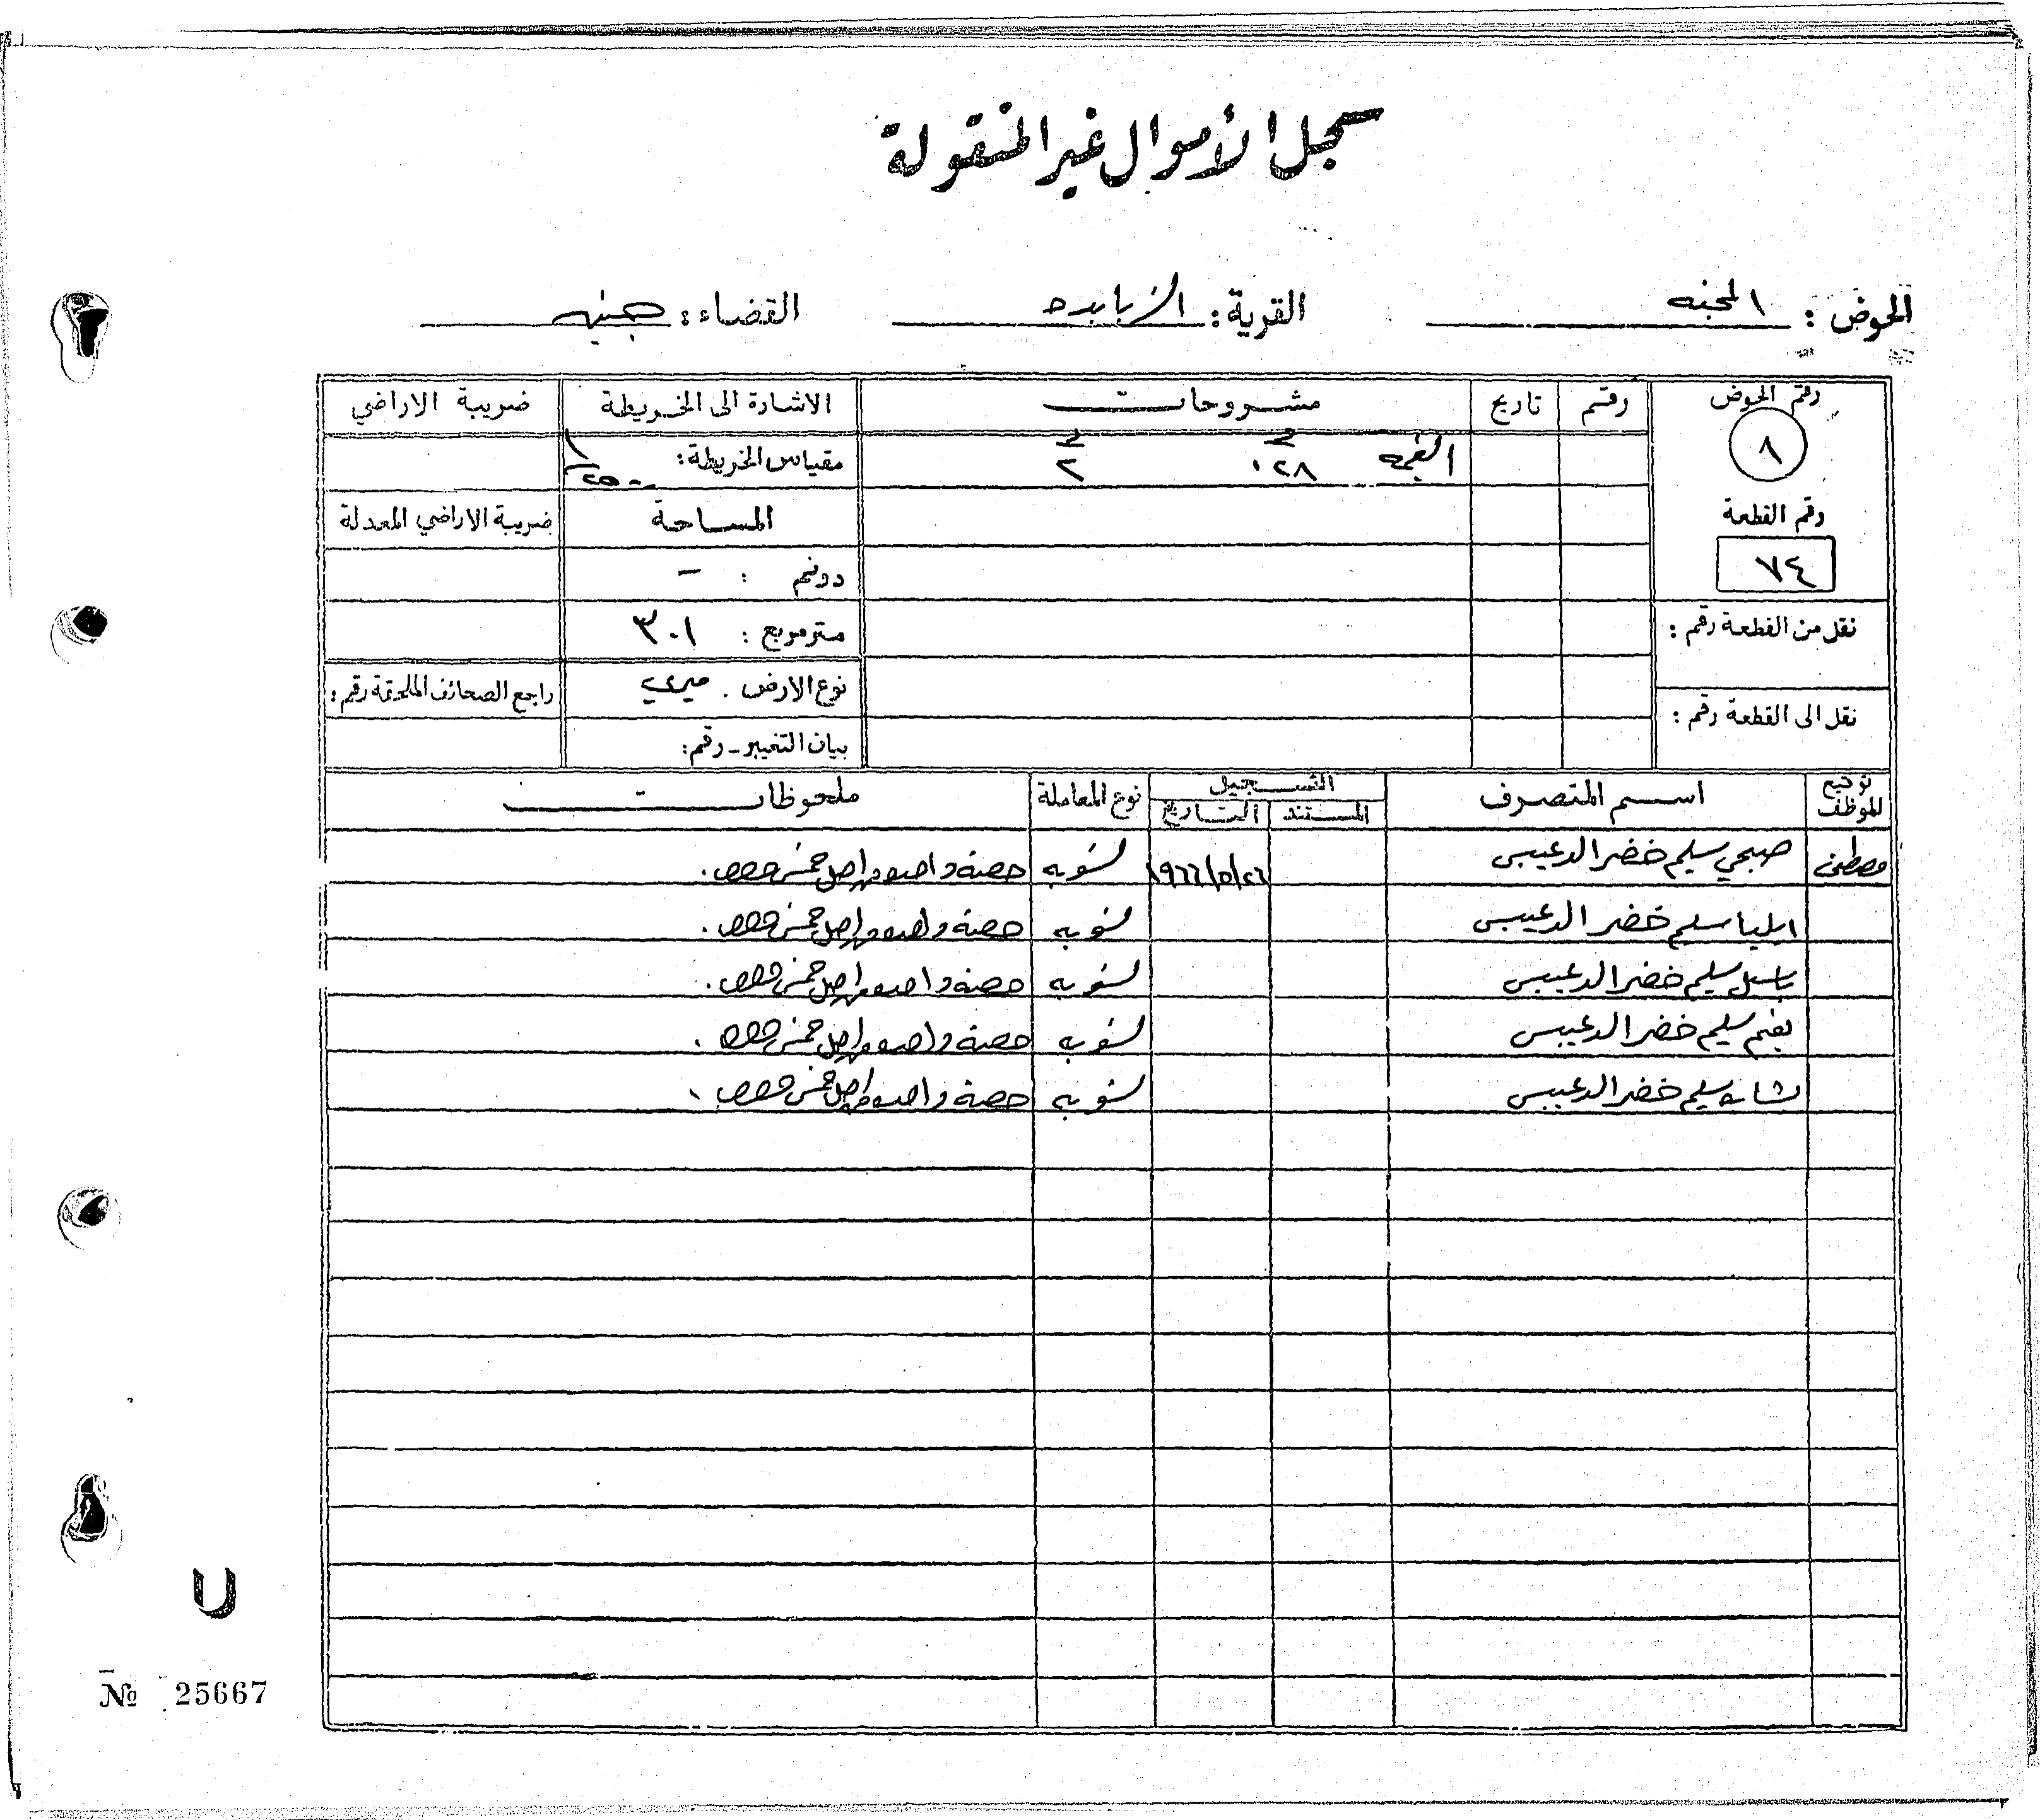 سجل الأموال غير المنقولة
الحوض : المجنه القرية : الزبابده القضاء : جنين
رقم الحوض رقم تاريخ مشروحات الاشارة الى الخريطة ضريبة الاراضي
٨ القيمه ٠٢٨ ٢ مقياس الخريطة : ١/٢٥٠٠
رقم القطعة المساحة ضريبة الاراضي المعدلة
٧٤ دونم : -
نقل من القطعة رقم : متر مربع : ٣٠١
نوع الارض . ميري راجع الصحائف الملحقة رقم :
نقل الى القطعة رقم : بيان التغيير - رقم :
توقيع الموظف اسم المتصرف التسجيل نوع المعاملة ملحوظات
المستند التاريخ
صبحي سليم خضر الدعيبس ١٩٦٦/٥/٢٦ تسويه حصة واحده من اصل خمس حصص .
ايليا سليم خضر الدعيبس تسويه حصة واحده من اصل خمس حصص .
باسل سليم خضر الدعيبس تسويه حصة واحده من اصل خمس حصص .
سليم خضر الدعيبس تسويه حصة واحده من اصل خمس حصص .
سليم خضر الدعيبس تسويه حصة واحده من اصل خمس حصص .
№ 25667